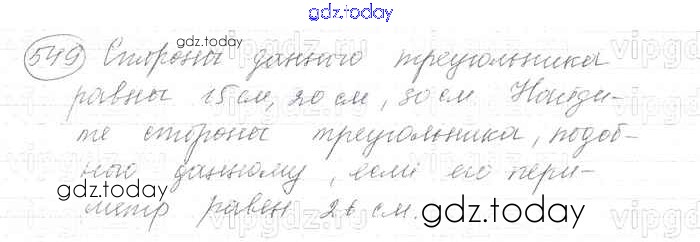 gdz.today
549 Стороны данного треугольника
равны 15 см, 20 см, 30 см Найди-
те стороны треугольника, подоб-
ного данному, если его пери-
метр равен 26 см.
gdz.today
gdz.today
gdz.today
gdz.today
gdz.today